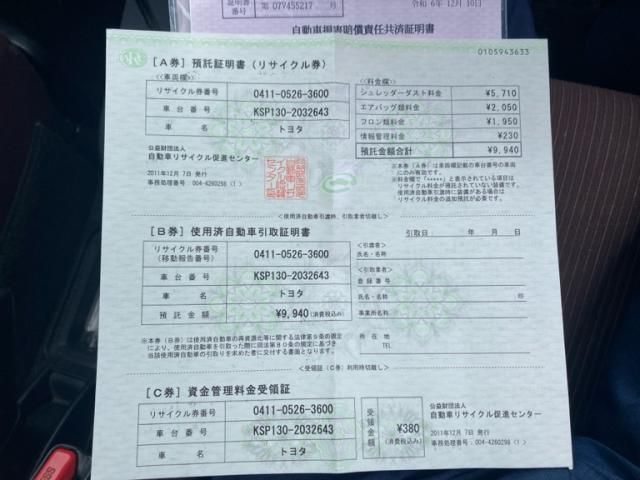 証明書番号 第 07V455217 号
令和 6年 12月 10日
自動車損害賠償責任共済証明書
0105943633
［A券］預託証明書（リサイクル券）
≪車両欄≫
リサイクル券番号 0411-0526-3600
車台番号 KSP130-2032643
車名 トヨタ
≪料金欄≫
シュレッダーダスト料金 ¥5,710
エアバッグ類料金 ¥2,050
フロン類料金 ¥1,950
情報管理料金 ¥230
預託金額合計 ¥9,940
公益財団法人
自動車リサイクル促進センター
2011年12月 7日 発行
事務処理番号 004-4260298（1）
※本券（A券）は車両欄記載の車台番号の車両
にのみ有効です。
※料金欄で「*****」と表示されている項目は
リサイクル料金が預託されていない装備です。
使用済自動車引渡時に装備がある場合は
リサイクル料金の追加預託が必要です。
<使用済自動車引渡時、引取業者切離し>
［B券］使用済自動車引取証明書
引取日： 年 月 日
リサイクル券番号
（移動報告番号） 0411-0526-3600
車台番号 KSP130-2032643
車名 トヨタ
預託金額 ¥9,940（消費税込み）
<引渡者>
氏名・名称
<引取業者>
登録番号
氏名・名称 印
事業所名称
所在地
TEL
※本券（B券）は使用済自動車の再資源化等に関する法律第９条の規定
により、使用済自動車を引取った際に同法第８０条の規定に基づき
当該使用済自動車の引取りを求めた者に交付する書面となります。
<受領証（C券）利用時切離し>
［C券］資金管理料金受領証
リサイクル券番号 0411-0526-3600
車台番号 KSP130-2032643
車名 トヨタ
受領金額 ¥380
（消費税込み）
公益財団法人
自動車リサイクル促進センター
2011年12月 7日 発行
事務処理番号：004-4260298（1）
PRESS